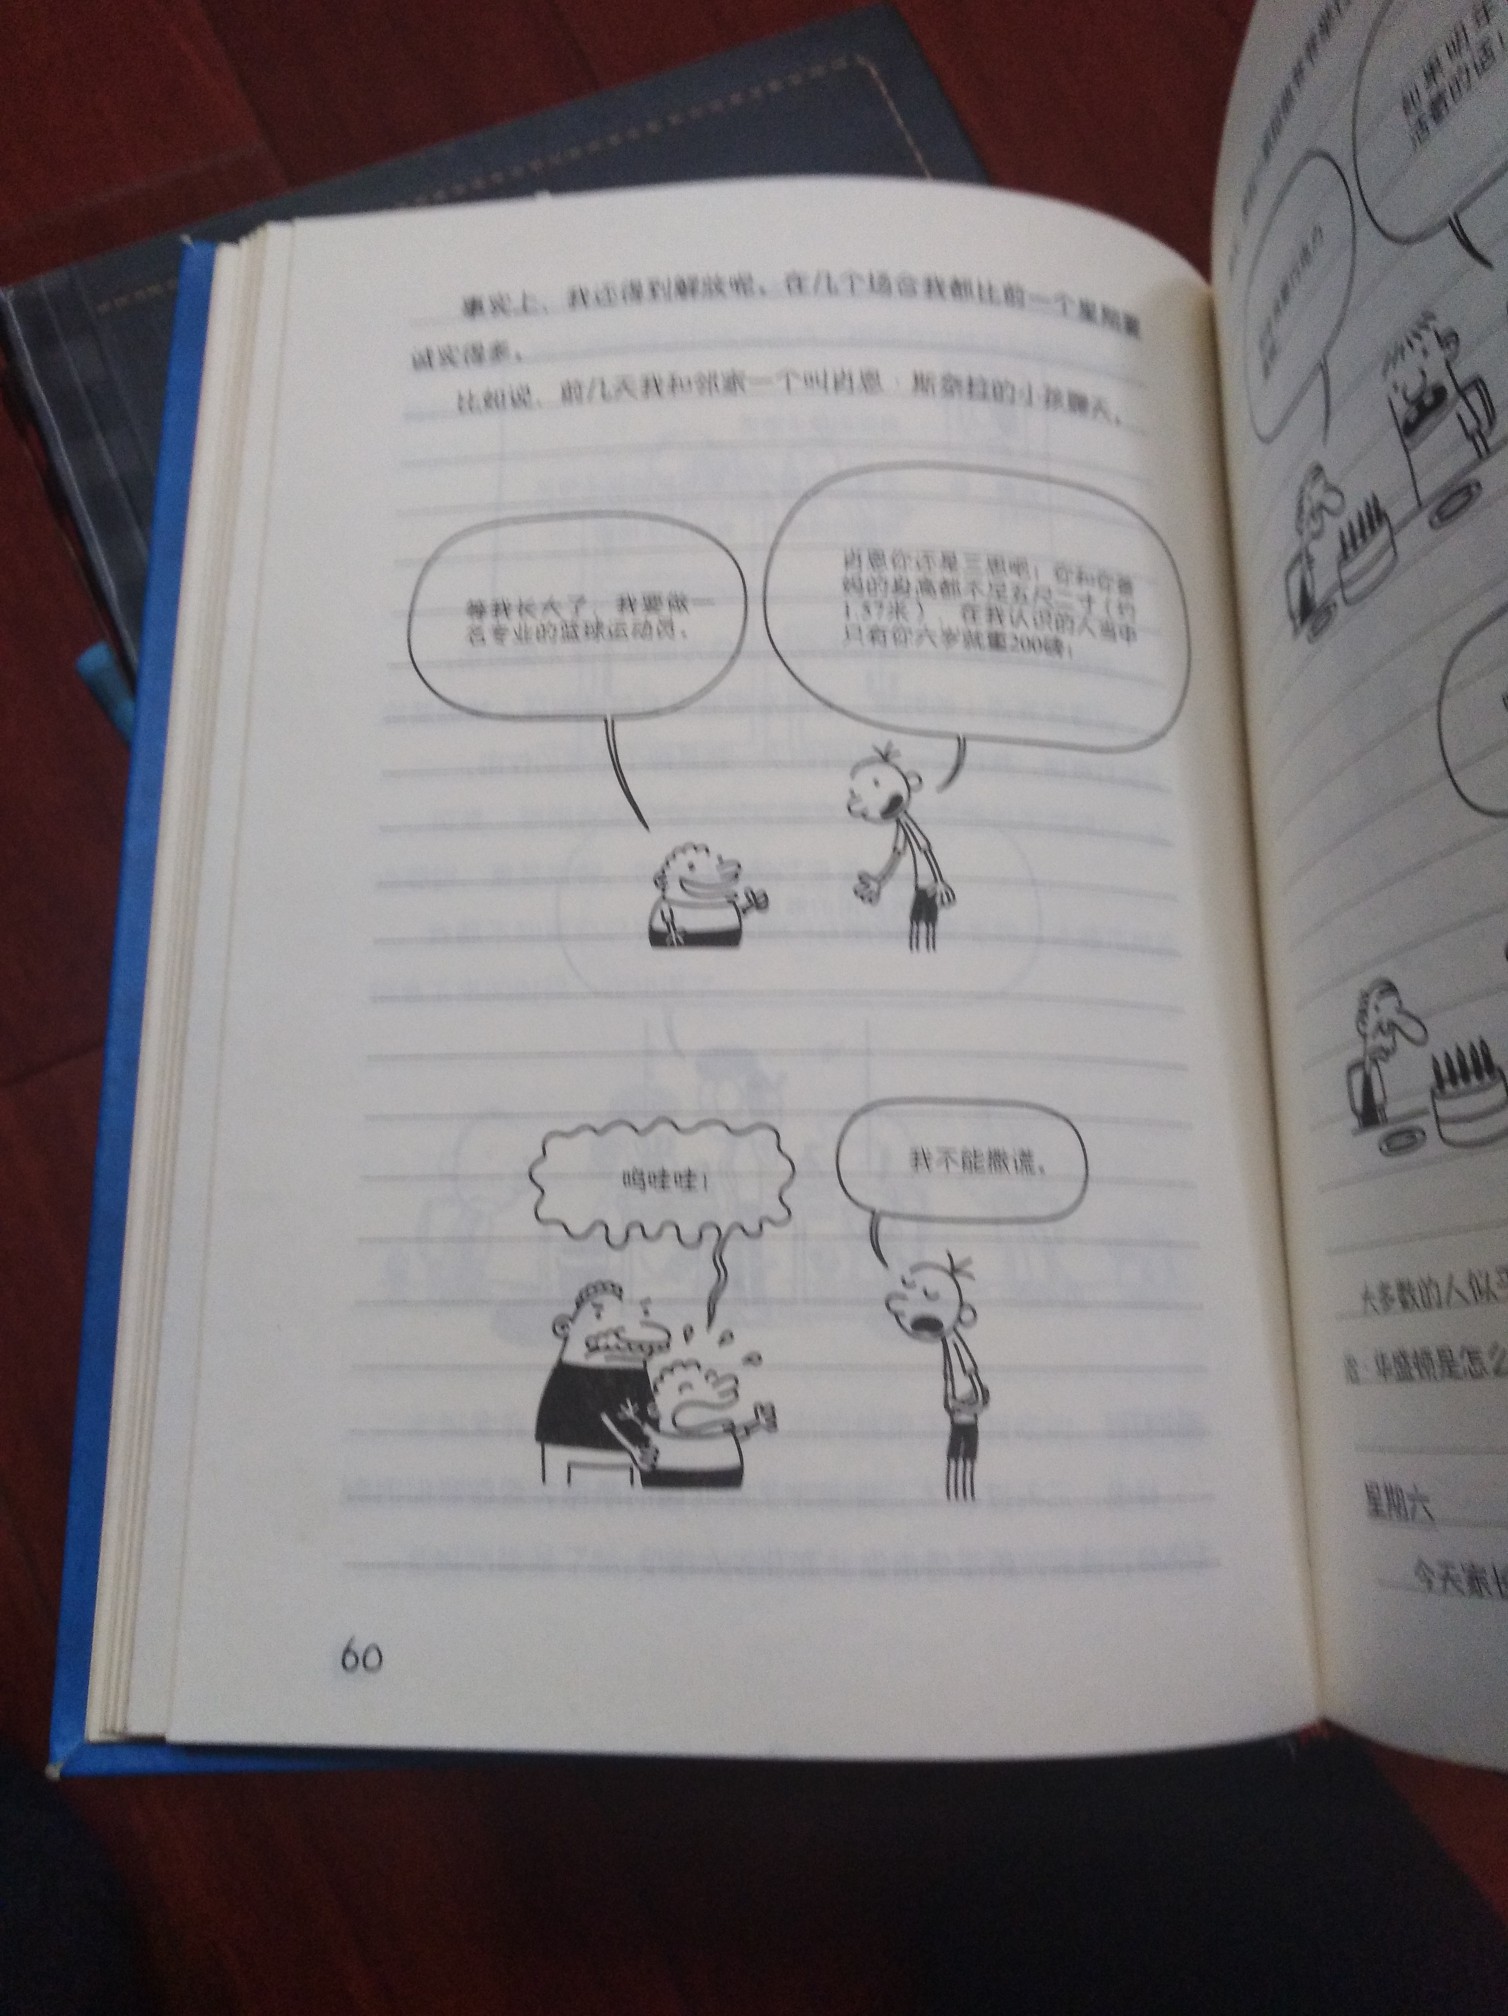 事实上，我还得到解放呢。在几个场合我都比前一个星期要
诚实得多。
比如说，前几天我和邻家一个叫肖恩·斯奈拉的小孩聊天。
等我长大了，我要做一
名专业的篮球运动员。
肖恩你还是三思吧！你和你爸
妈的身高都不足五尺二寸（约
1.57米），在我认识的人当中
只有你六岁就重200磅！
呜哇哇！
我不能撒谎。
60
如果明年
活着的话！
大多数的人似乎
治·华盛顿是怎么
星期六
今天家长